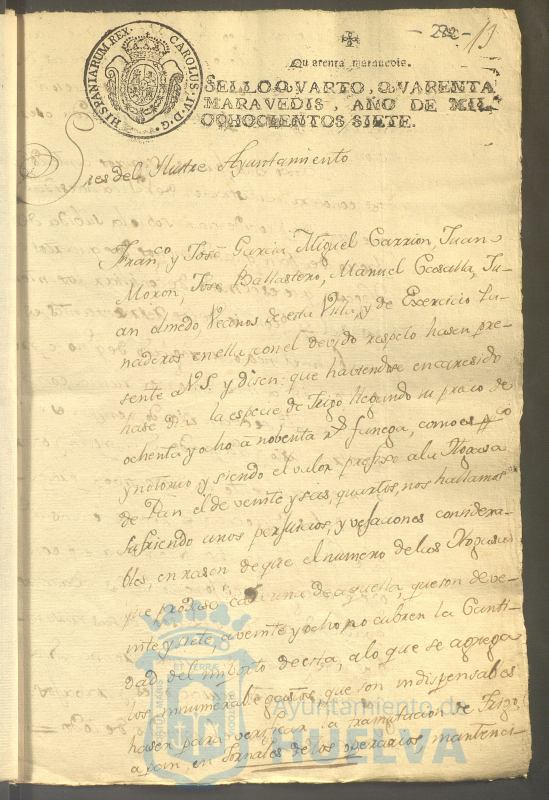 - 222 - 13
HISPANIARUM REX. CAROLUS. IV. D. G.
Quarenta maravedis.
SELLO QVARTO, QVARENTA
MARAVEDIS, AÑO DE MIL
OCHOCIENTOS SIETE.
Sres del Ilustre Ayuntamiento
Franco. y Josè Garcia, Miguel Carrion, Juan
Moròn, Josè Ballastero, Manuel Juan
Olmedo, Vecinos de esta Villa, y de Exercicio Pa-
naderos en ella, con el devido respeto hasen pre-
sente a V.S. y disen: que haviendose encaresido
hase dias la especie de Trigo llegando su preco de
ochenta y ocho à noventa rs. fanega, como es pco.
y notorio, y siendo el valor prefixo a la Hogasa
de Pan el de veinte y seis quartos, nos hallamos
sufriendo unos perjuicios, y vejaciones considera-
bles, en rason de que el numero de las Hogasas
que produse cada una de aquella, que son de ve-
inte y siete, a veinte y ocho no cubren la Canti-
dad del importe de esta, a lo que se agrega
los innumerables gastos que son indispensables
haser para verificar la de Trigo,
a pan, en Jornales de los operarios, mantenci-
Ayuntamiento de
HUELVA